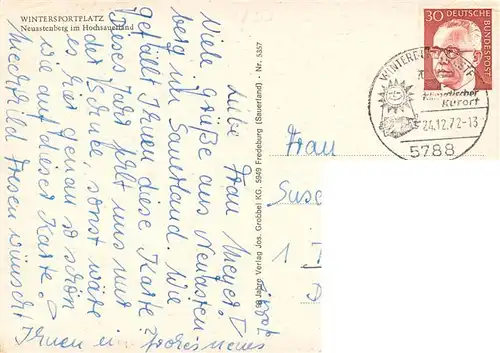 WINTERSPORTPLATZ
Neuastenberg im Hochsauerland
Liebe Frau Meyer!
Viele Grüße aus Neuasten-
berg im Sauerland. Wie
gefällt Ihnen diese Karte?
Dieses Jahr fehlt uns nur
der Schnee, sonst wäre
es hier genau so schön
wie auf dieser Karte.
Ihnen ein frohes neues
wünscht
98 Jahre Verlag Jos. Grobbel KG, 5949 Fredeburg (Sauerland) - Nr. 5357
Frau
1
30 DEUTSCHE BUNDESPOST
WINTERBERG
Kurort
24.12.72-13
5788